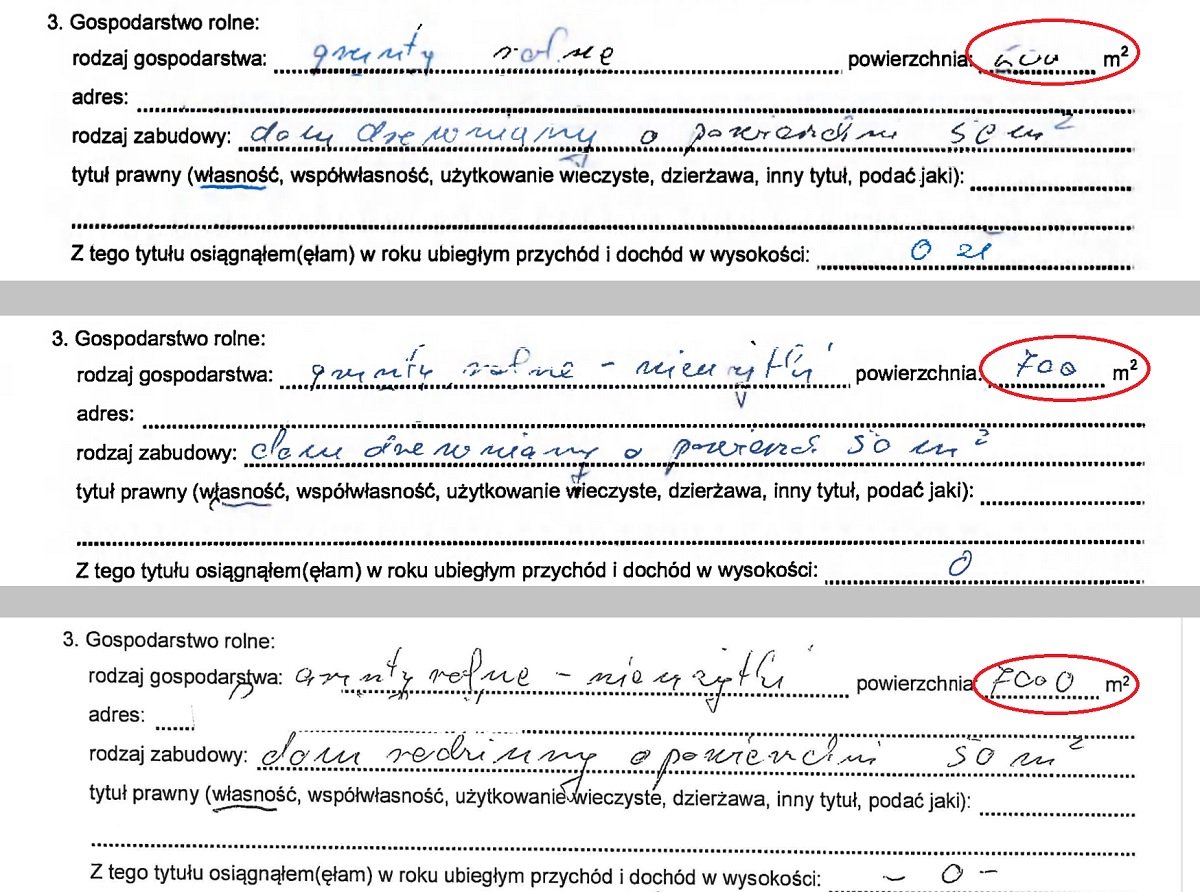 3. Gospodarstwo rolne:
rodzaj gospodarstwa: grunty rolne powierzchnia: m²
adres:
rodzaj zabudowy: dom drewniany o powierzchni 50 m²
tytuł prawny (własność, współwłasność, użytkowanie wieczyste, dzierżawa, inny tytuł, podać jaki):
Z tego tytułu osiągnąłem(ęłam) w roku ubiegłym przychód i dochód w wysokości: 0 zł
3. Gospodarstwo rolne:
rodzaj gospodarstwa: grunty rolne - nieużytki powierzchnia: 700 m²
adres:
rodzaj zabudowy: dom drewniany o powierzch. 50 m²
tytuł prawny (własność, współwłasność, użytkowanie wieczyste, dzierżawa, inny tytuł, podać jaki):
Z tego tytułu osiągnąłem(ęłam) w roku ubiegłym przychód i dochód w wysokości: 0
3. Gospodarstwo rolne:
rodzaj gospodarstwa: grunty rolne - nieużytki powierzchnia 7000 m²
adres:
rodzaj zabudowy: dom rodzinny o powierzchni 50 m²
tytuł prawny (własność, współwłasność, użytkowanie wieczyste, dzierżawa, inny tytuł, podać jaki):
Z tego tytułu osiągnąłem(ęłam) w roku ubiegłym przychód i dochód w wysokości: - 0 -